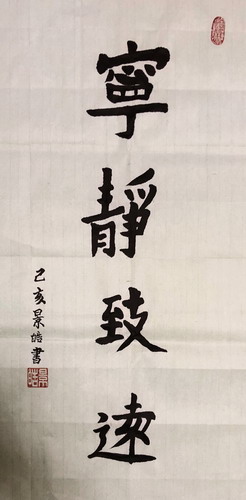 寧靜致遠
己亥景皓書